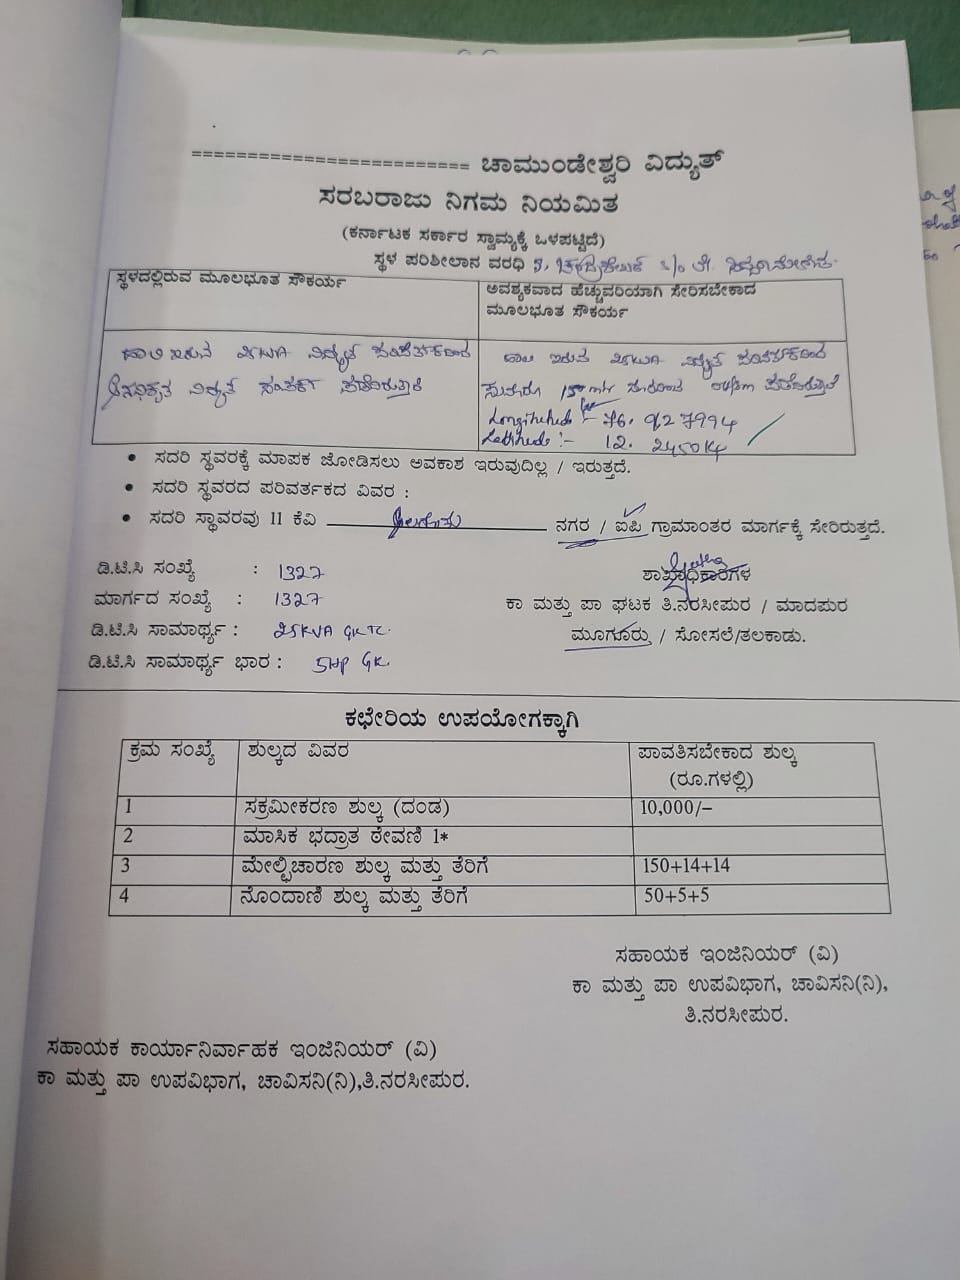 ========================= ಚಾಮುಂಡೇಶ್ವರಿ ವಿದ್ಯುತ್
ಸರಬರಾಜು ನಿಗಮ ನಿಯಮಿತ
(ಕರ್ನಾಟಕ ಸರ್ಕಾರ ಸ್ವಾಮ್ಯಕ್ಕೆ ಒಳಪಟ್ಟಿದೆ)
ಸ್ಥಳ ಪರಿಶೀಲಾನ ವರಧಿ s/o
ಸ್ಥಳದಲ್ಲಿರುವ ಮೂಲಭೂತ ಸೌಕರ್ಯ
ಅವಶ್ಯಕವಾದ ಹೆಚ್ಚುವರಿಯಾಗಿ ಸೇರಿಸಬೇಕಾದ
ಮೂಲಭೂತ ಸೌಕರ್ಯ
ಹಾಲಿ ಇರುವ 25KVA ವಿದ್ಯುತ್ ಪರಿವರ್ತಕದಿಂದ
ಅನಧಿಕೃತ ವಿದ್ಯುತ್ ಸಂಪರ್ಕ ಪಡೆದಿರುತ್ತಾರೆ
ಹಾಲಿ ಇರುವ 25KVA ವಿದ್ಯುತ್ ಪರಿವರ್ತಕದಿಂದ
ಸುಮಾರು 150 mtr
:- 76. 927994
:- 12. 245014
• ಸದರಿ ಸ್ಥವರಕ್ಕೆ ಮಾಪಕ ಜೋಡಿಸಲು ಅವಕಾಶ ಇರುವುದಿಲ್ಲ / ಇರುತ್ತದೆ.
• ಸದರಿ ಸ್ಥವರದ ಪರಿವರ್ತಕದ ವಿವರ :
• ಸದರಿ ಸ್ಥಾವರವು 11 ಕೆವಿ ನಗರ / ಐಪಿ ಗ್ರಾಮಾಂತರ ಮಾರ್ಗಕ್ಕೆ ಸೇರಿರುತ್ತದೆ.
ಡಿ.ಟಿ.ಸಿ ಸಂಖ್ಯೆ : 1327
ಮಾರ್ಗದ ಸಂಖ್ಯೆ : 1327
ಡಿ.ಟಿ.ಸಿ ಸಾಮಾರ್ಥ್ಯ : 25KVA GKTC.
ಡಿ.ಟಿ.ಸಿ ಸಾಮಾರ್ಥ್ಯ ಭಾರ : 5HP GK.
ಶಾಖಾಧಿಕಾರಿಗಳ
ಕಾ ಮತ್ತು ಪಾ ಘಟಕ ತಿ.ನರಸೀಪುರ / ಮಾದಪುರ
ಮೂಗೂರು / ಸೋಸಲೆ/ತಲಕಾಡು.
ಕಛೇರಿಯ ಉಪಯೋಗಕ್ಕಾಗಿ
ಕ್ರಮ ಸಂಖ್ಯೆ ಶುಲ್ಕದ ವಿವರ ಪಾವತಿಸಬೇಕಾದ ಶುಲ್ಕ
(ರೂ.ಗಳಲ್ಲಿ)
1 ಸಕ್ರಮೀಕರಣ ಶುಲ್ಕ (ದಂಡ) 10,000/–
2 ಮಾಸಿಕ ಭದ್ರಾತ ಠೇವಣಿ 1*
3 ಮೇಲ್ವಿಚಾರಣ ಶುಲ್ಕ ಮತ್ತು ತೆರಿಗೆ 150+14+14
4 ನೊಂದಾಣಿ ಶುಲ್ಕ ಮತ್ತು ತೆರಿಗೆ 50+5+5
ಸಹಾಯಕ ಇಂಜಿನಿಯರ್ (ವಿ)
ಕಾ ಮತ್ತು ಪಾ ಉಪವಿಭಾಗ, ಚಾವಿಸನಿ(ನಿ),
ತಿ.ನರಸೀಪುರ.
ಸಹಾಯಕ ಕಾರ್ಯಾನಿರ್ವಾಹಕ ಇಂಜಿನಿಯರ್ (ವಿ)
ಕಾ ಮತ್ತು ಪಾ ಉಪವಿಭಾಗ, ಚಾವಿಸನಿ(ನಿ),ತಿ.ನರಸೀಪುರ.